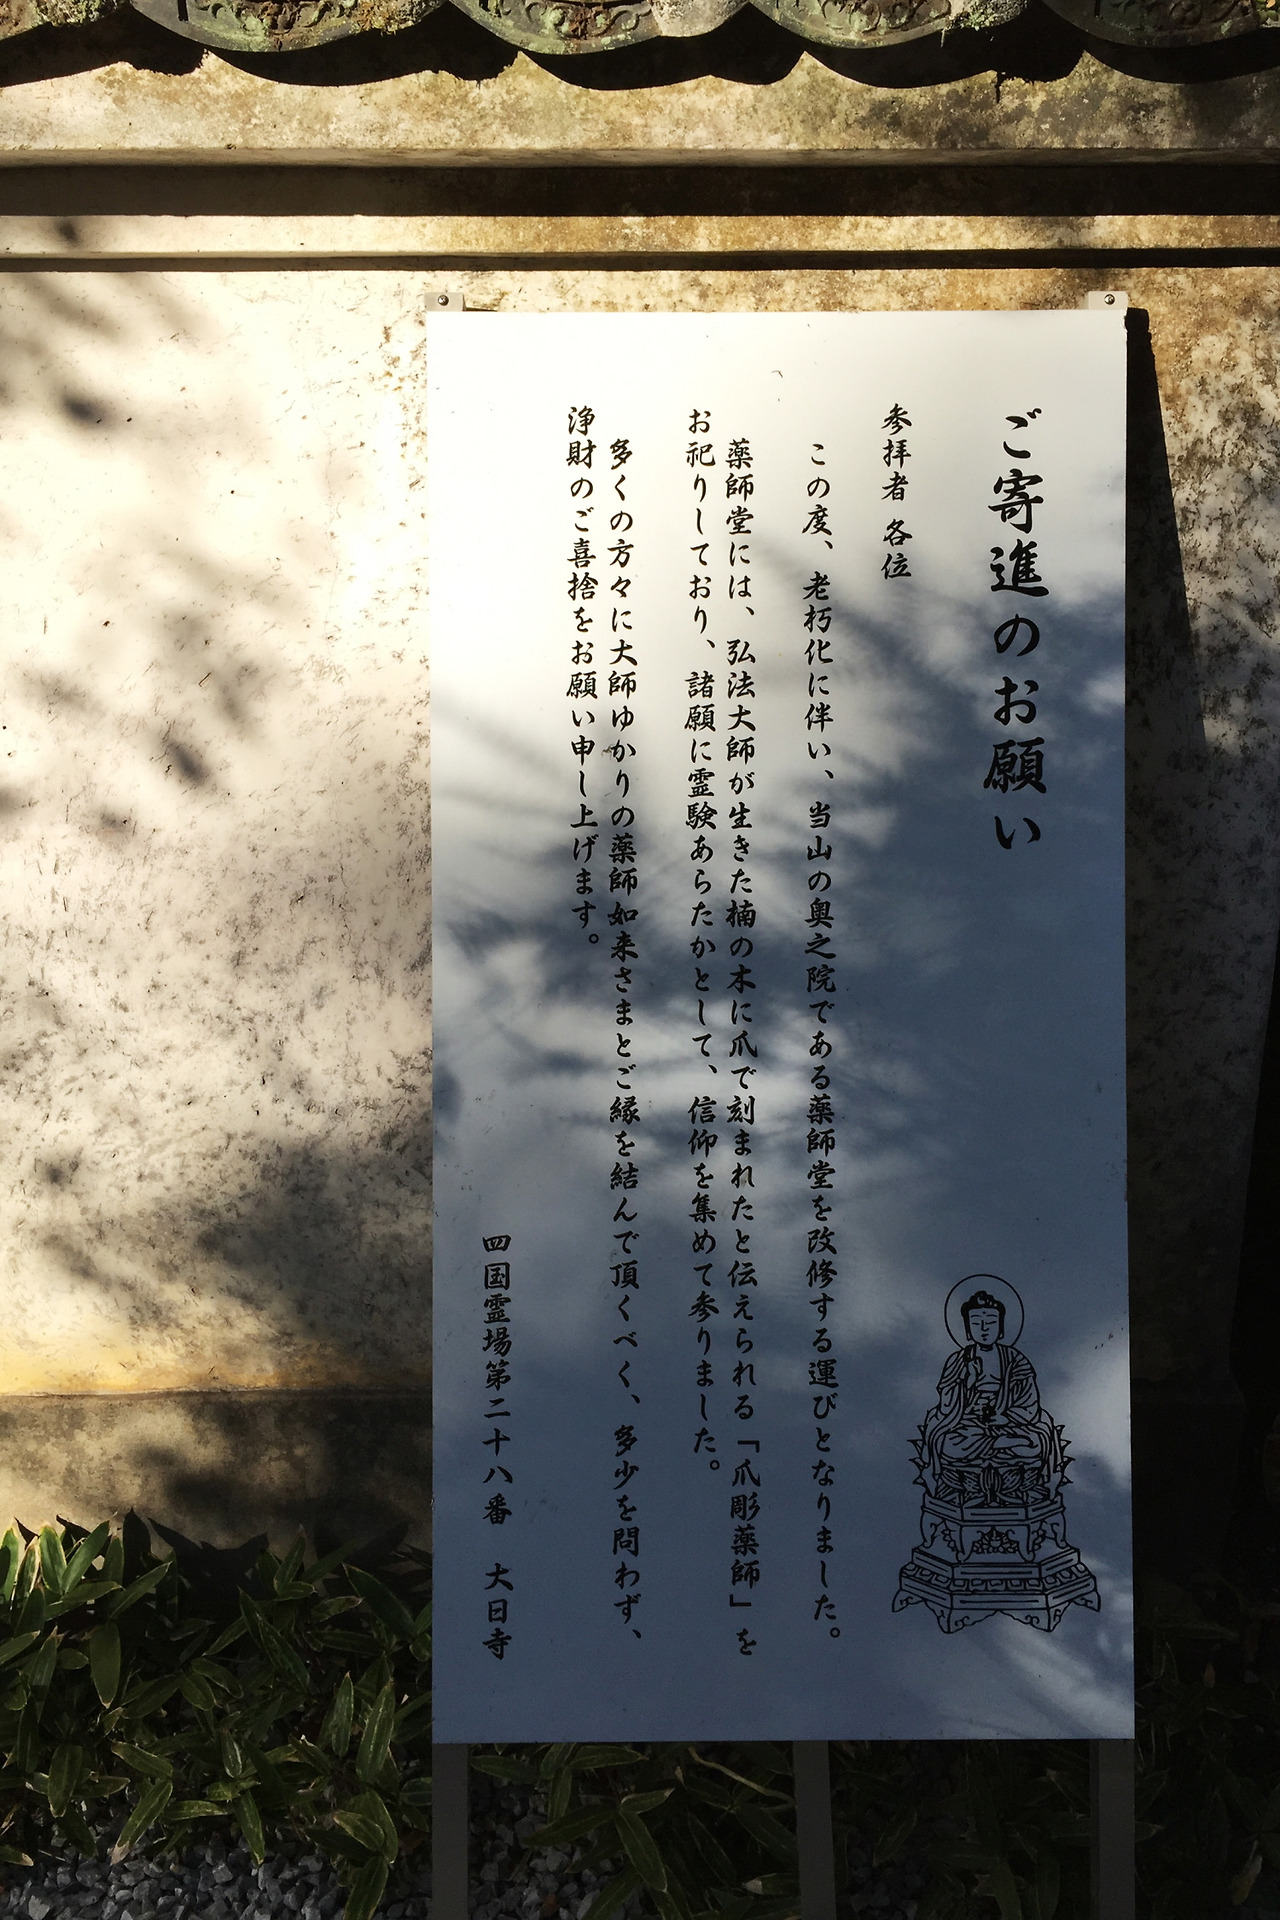 ご寄進のお願い
参拝者 各位
この度、老朽化に伴い、当山の奥之院である薬師堂を改修する運びとなりました。
薬師堂には、弘法大師が生きた楠の木に爪で刻まれたと伝えられる「爪彫薬師」を
お祀りしており、諸願に霊験あらたかとして、信仰を集めて参りました。
多くの方々に大師ゆかりの薬師如来さまとご縁を結んで頂くべく、多少を問わず、
浄財のご喜捨をお願い申し上げます。
四国霊場第二十八番　大日寺